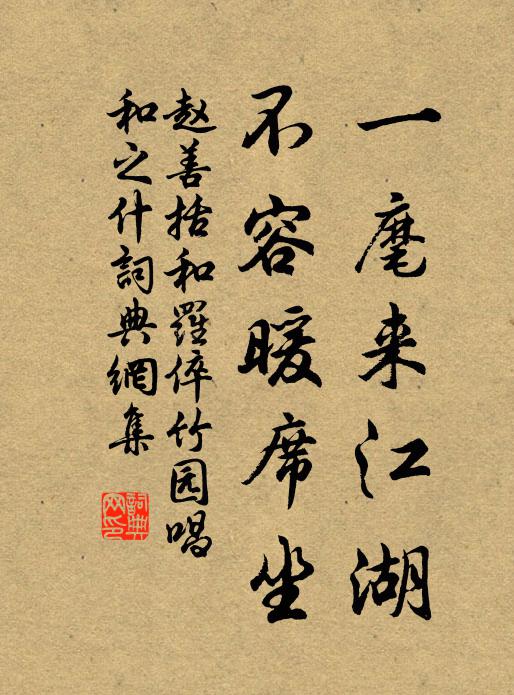 一麾来江湖
不容暖席坐
赵善括和羅倅竹园唱
和之什詞典網集
詞典网印